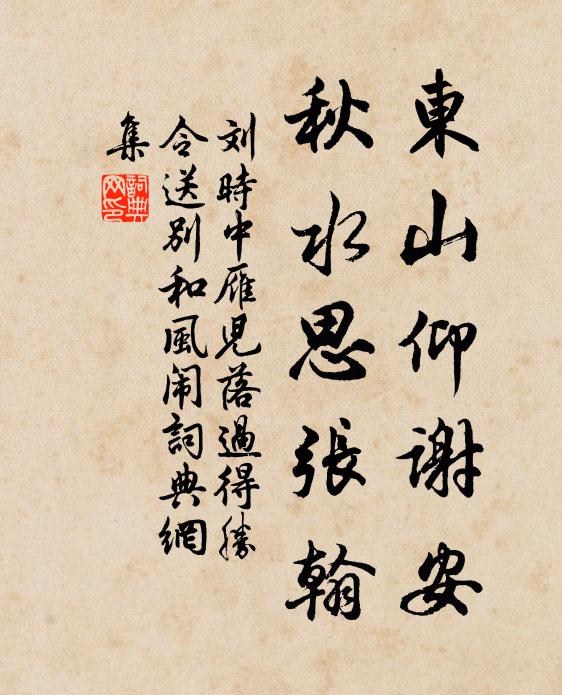 東山仰謝安
秋水思張翰
刘時中雁兒落過得勝
令送别和風闹詞典網
集
詞典
网印